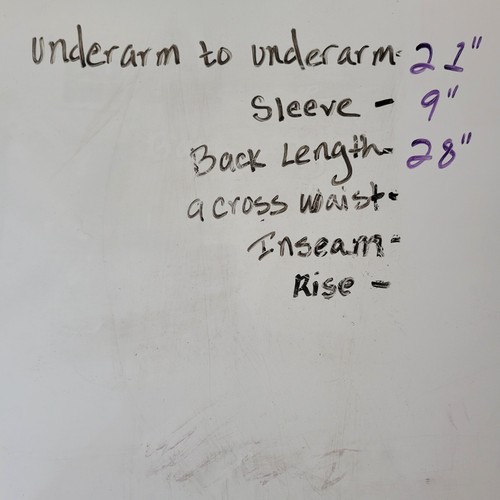 underarm to underarm- 21"
Sleeve - 9"
Back Length- 28"
across waist-
Inseam-
Rise -